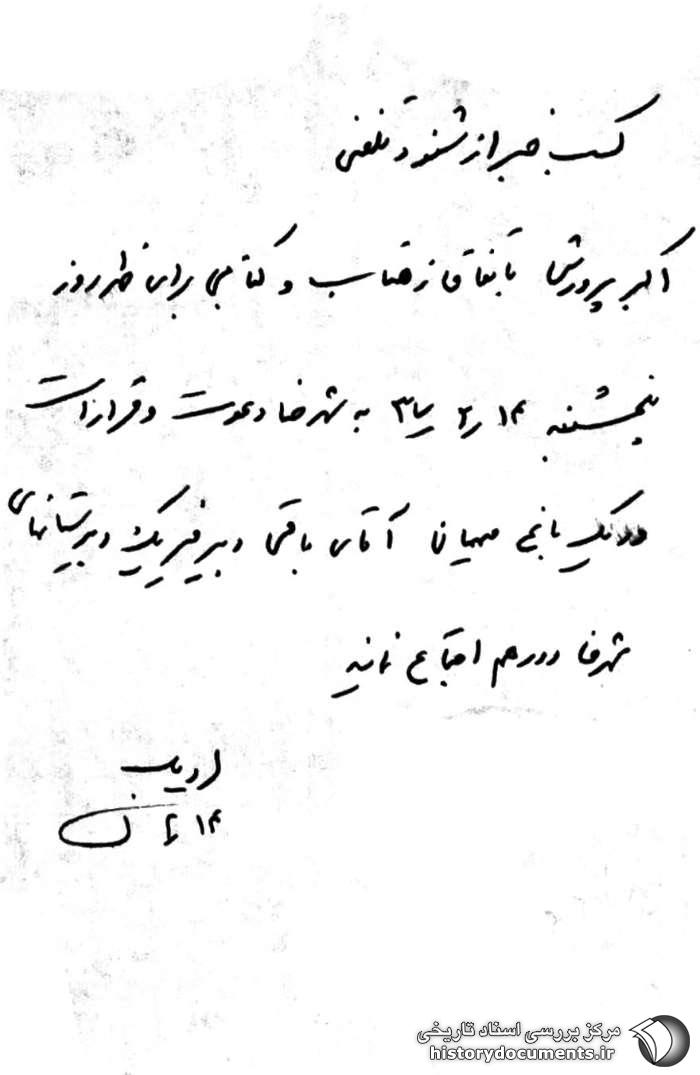 کسب خبر از شنود تلفنی
اکبر پرورش باتفاق از قصاب و کتابی برای ظهر روز
پنجشنبه ۱۴ر۲ر۳ به شهرضا دعوت و قرار است
در یک باغ میهمان آقای باقی دبیر فیزیک دبیرستانهای
شهرضا دور هم اجتماع نمایند
ادیب
۱۴
مرکز بررسی اسناد تاریخی
historydocuments.ir